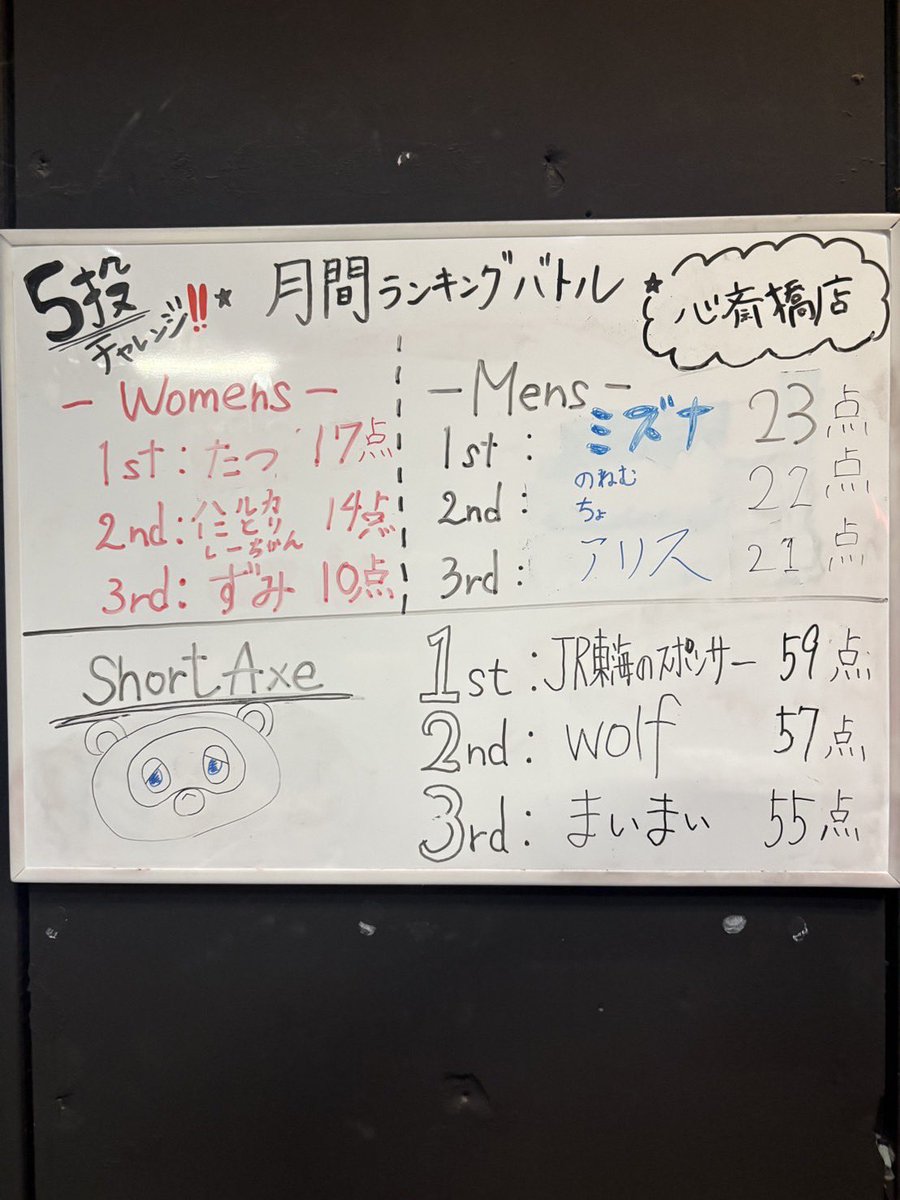 5投
チャレンジ!!
月間ランキングバトル
心斎橋店
- Womens -
1st: たつ 17点
2nd: ハルカ
にとり
しーちゃん
14点
3rd: ずみ 10点
- Mens -
1st: ミズナ 23点
2nd: のねむ
ちょ
22点
3rd: アリス 21点
Short Axe
1st: JR東海のスポンサー 59点
2nd: wolf 57点
3rd: まいまい 55点